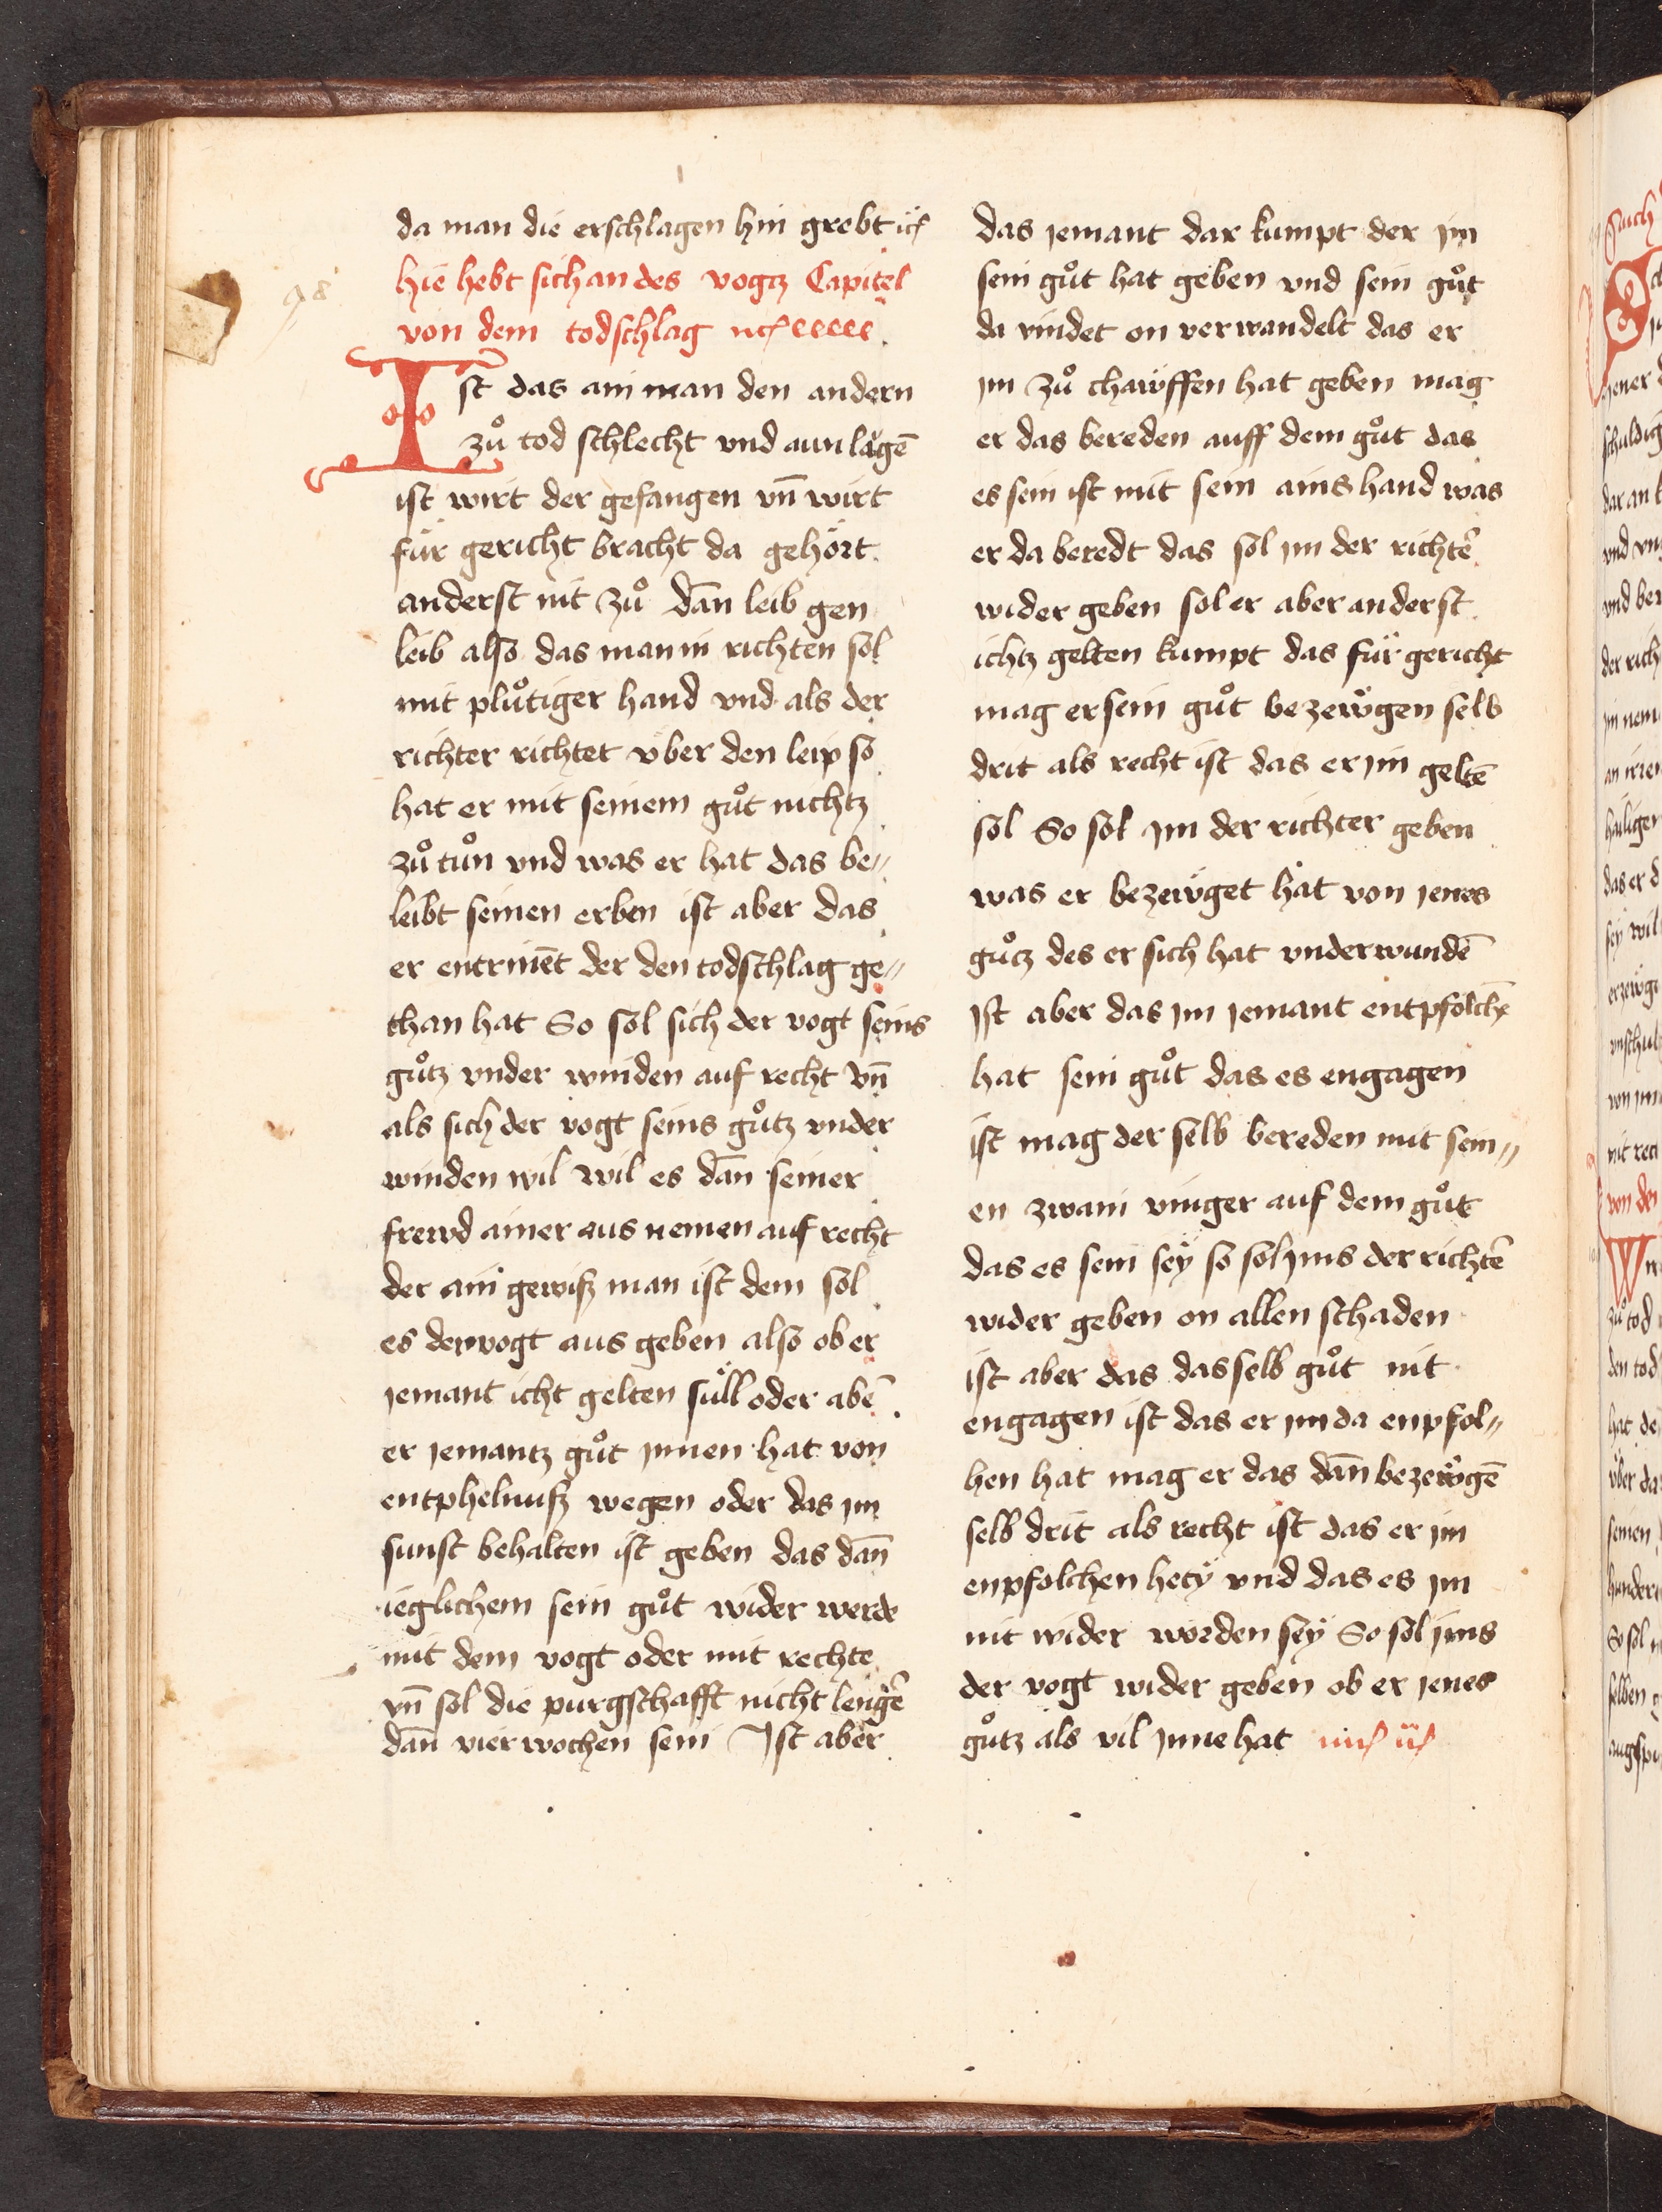 da man die erschlagen hin grebt ıc̄
hie hebt sich an des vogtz Capitel
von dem todschlag
98
Ist das ain man den andern
zůͦ tod schlecht vnd aun lägē
ist wirt der gefangen vn̄ wirt
für gericht bracht da gehört
anderst nit zůͦ dān leib gen
leib also das man in richten sol
mit plůtiger hand vnd als der
richter richtet über den leip so
hat er mit seinem gůt nichtz
zů tůn vnd was er hat das be〃
leibt seinen erben ist aber das
er entrinēt der den todschlag ge〃
than hat So sol sich der vogt seins
gůtz vnder winden auf recht vn̄
als sich der vogt seins gůtz vnder
winden wil wil es dān seiner
frewd ainer aus nemen auf recht
der ain gewiß man ist dem sol
es der vogt aus geben also ob er
jemant icht gelten süll oder abē
er jemantz gůt jnnen hat von
entphelnuß wegen oder das jm
sunst behalten ist geben das dan̄
ieglichem sein gůt wider werde
mit dem vogt oder mit rechte
vn̄ sol die purgschafft nicht lengē
dan̄ vier wochen sein Ist aber
das jemant dar kumpt der jm
sein gůt hat geben vnd sein gůt
da vindet on verwandelt das er
jm zů chawffen hat geben mag
er das bereden auff dem gůt das
es sein ist mit sein ains hand was
er da beredt das sol jm der richtē
wider geben sol er aber anderst
ichtz gelten kumpt das für gericht
mag er sein gůt bezewgen selb
drit als recht ist das er jm geltē
sol So sol jm der richter geben
was er bezewget hat von jenes
gůtz des er sich hat vnderwundē
jst aber das jm jemant entpfolchē
hat sein gůt das es engagen
ist mag der selb bereden mit sein〃
en zwain vinger auf dem gůt
das es sein sey so sol jms der richtē
wider geben on allen schaden
ist aber das dasselb gůt nit
engagen ist das er jm da enpfol〃
hen hat mag er das dan̄ bezewgē
selb drit als recht ist das er jm
enpfolchen hety vnd das es jm
nit wider worden sey So sol jms
der vogt wider geben ob er jenes
gůtz als vil jnne hat